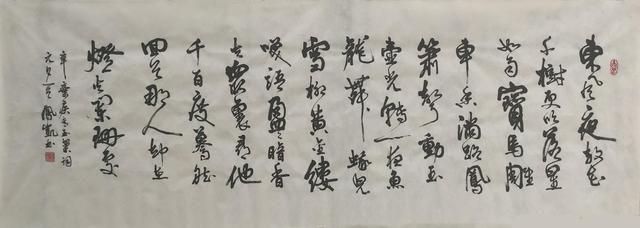 東风夜放花
千樹更吹落星
如雨寶馬雕
車香滿路鳳
簫聲動玉
壺光轉一夜魚
龍舞蛾兒
雪柳黃金縷
笑語盈盈暗香
去眾裏尋他
千百度驀然
回首那人却在
燈火闌珊處
辛棄疾青玉案詞
元夕